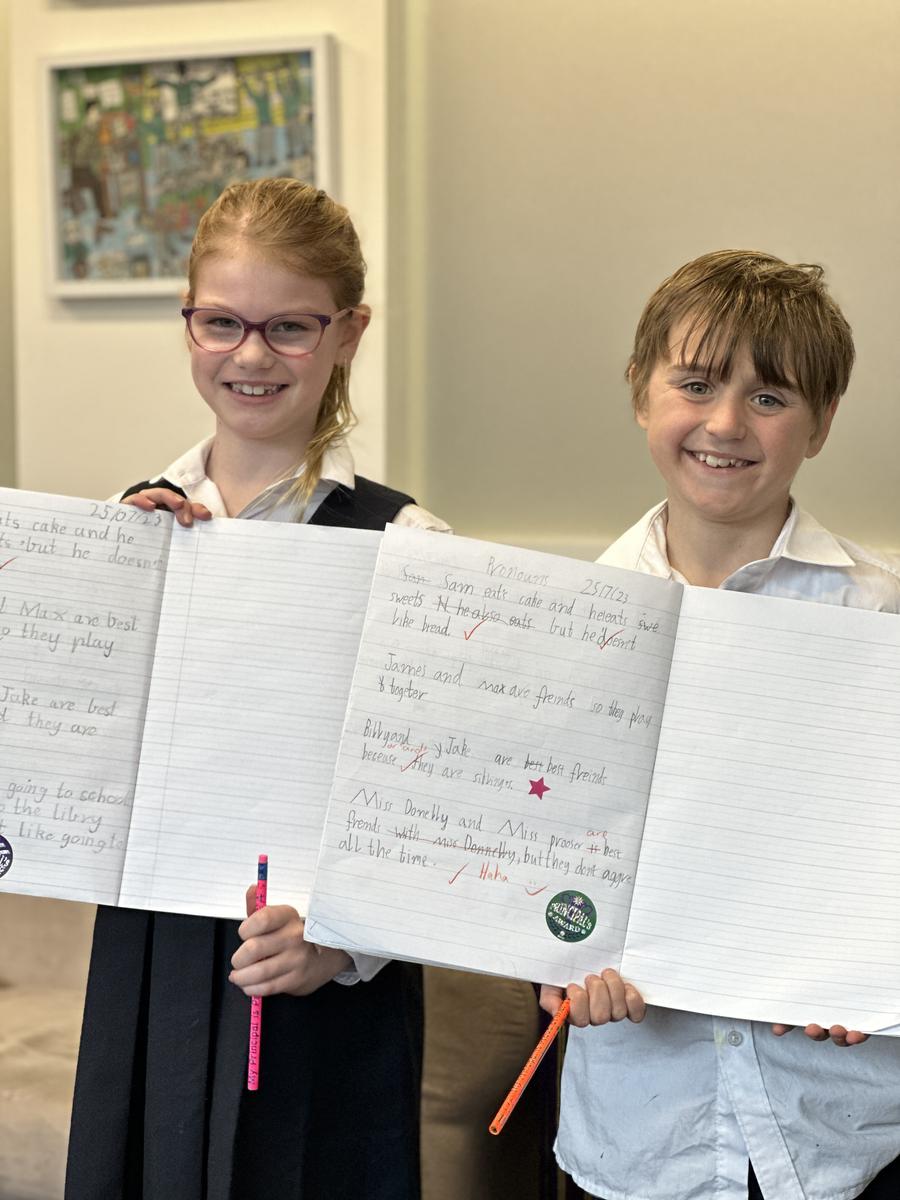 25/07/23
ats cake and he
ts but he doesn't
Max are best
they play
Jake are best
they are
going to school
the librry
like going to
Pronouns 25/7/23
Sam Sam eats cake and heleats swe
sweets N he also eats but he doesnt
like bread.
James and max are freinds so they play
togeter
Billy and y Jake are best best freinds
or and?
because they are siblings.
are
Miss Donelly and Miss prosser best
frends with miss Donnelly, but they dont aggre
all the time.
Haha
PRINCIPAL'S
AWARD
My Principal is